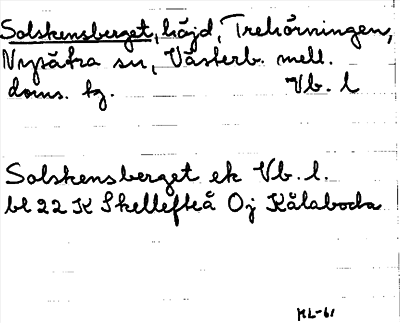 Solskensberget, höjd, Trehörningen,
Nysätra sn, Västerb. mell.
doms. tg. Vb. l
Solskensberget ek Vb. l.
bl 22 K Skellefteå Oj Kålaboda
KL-61